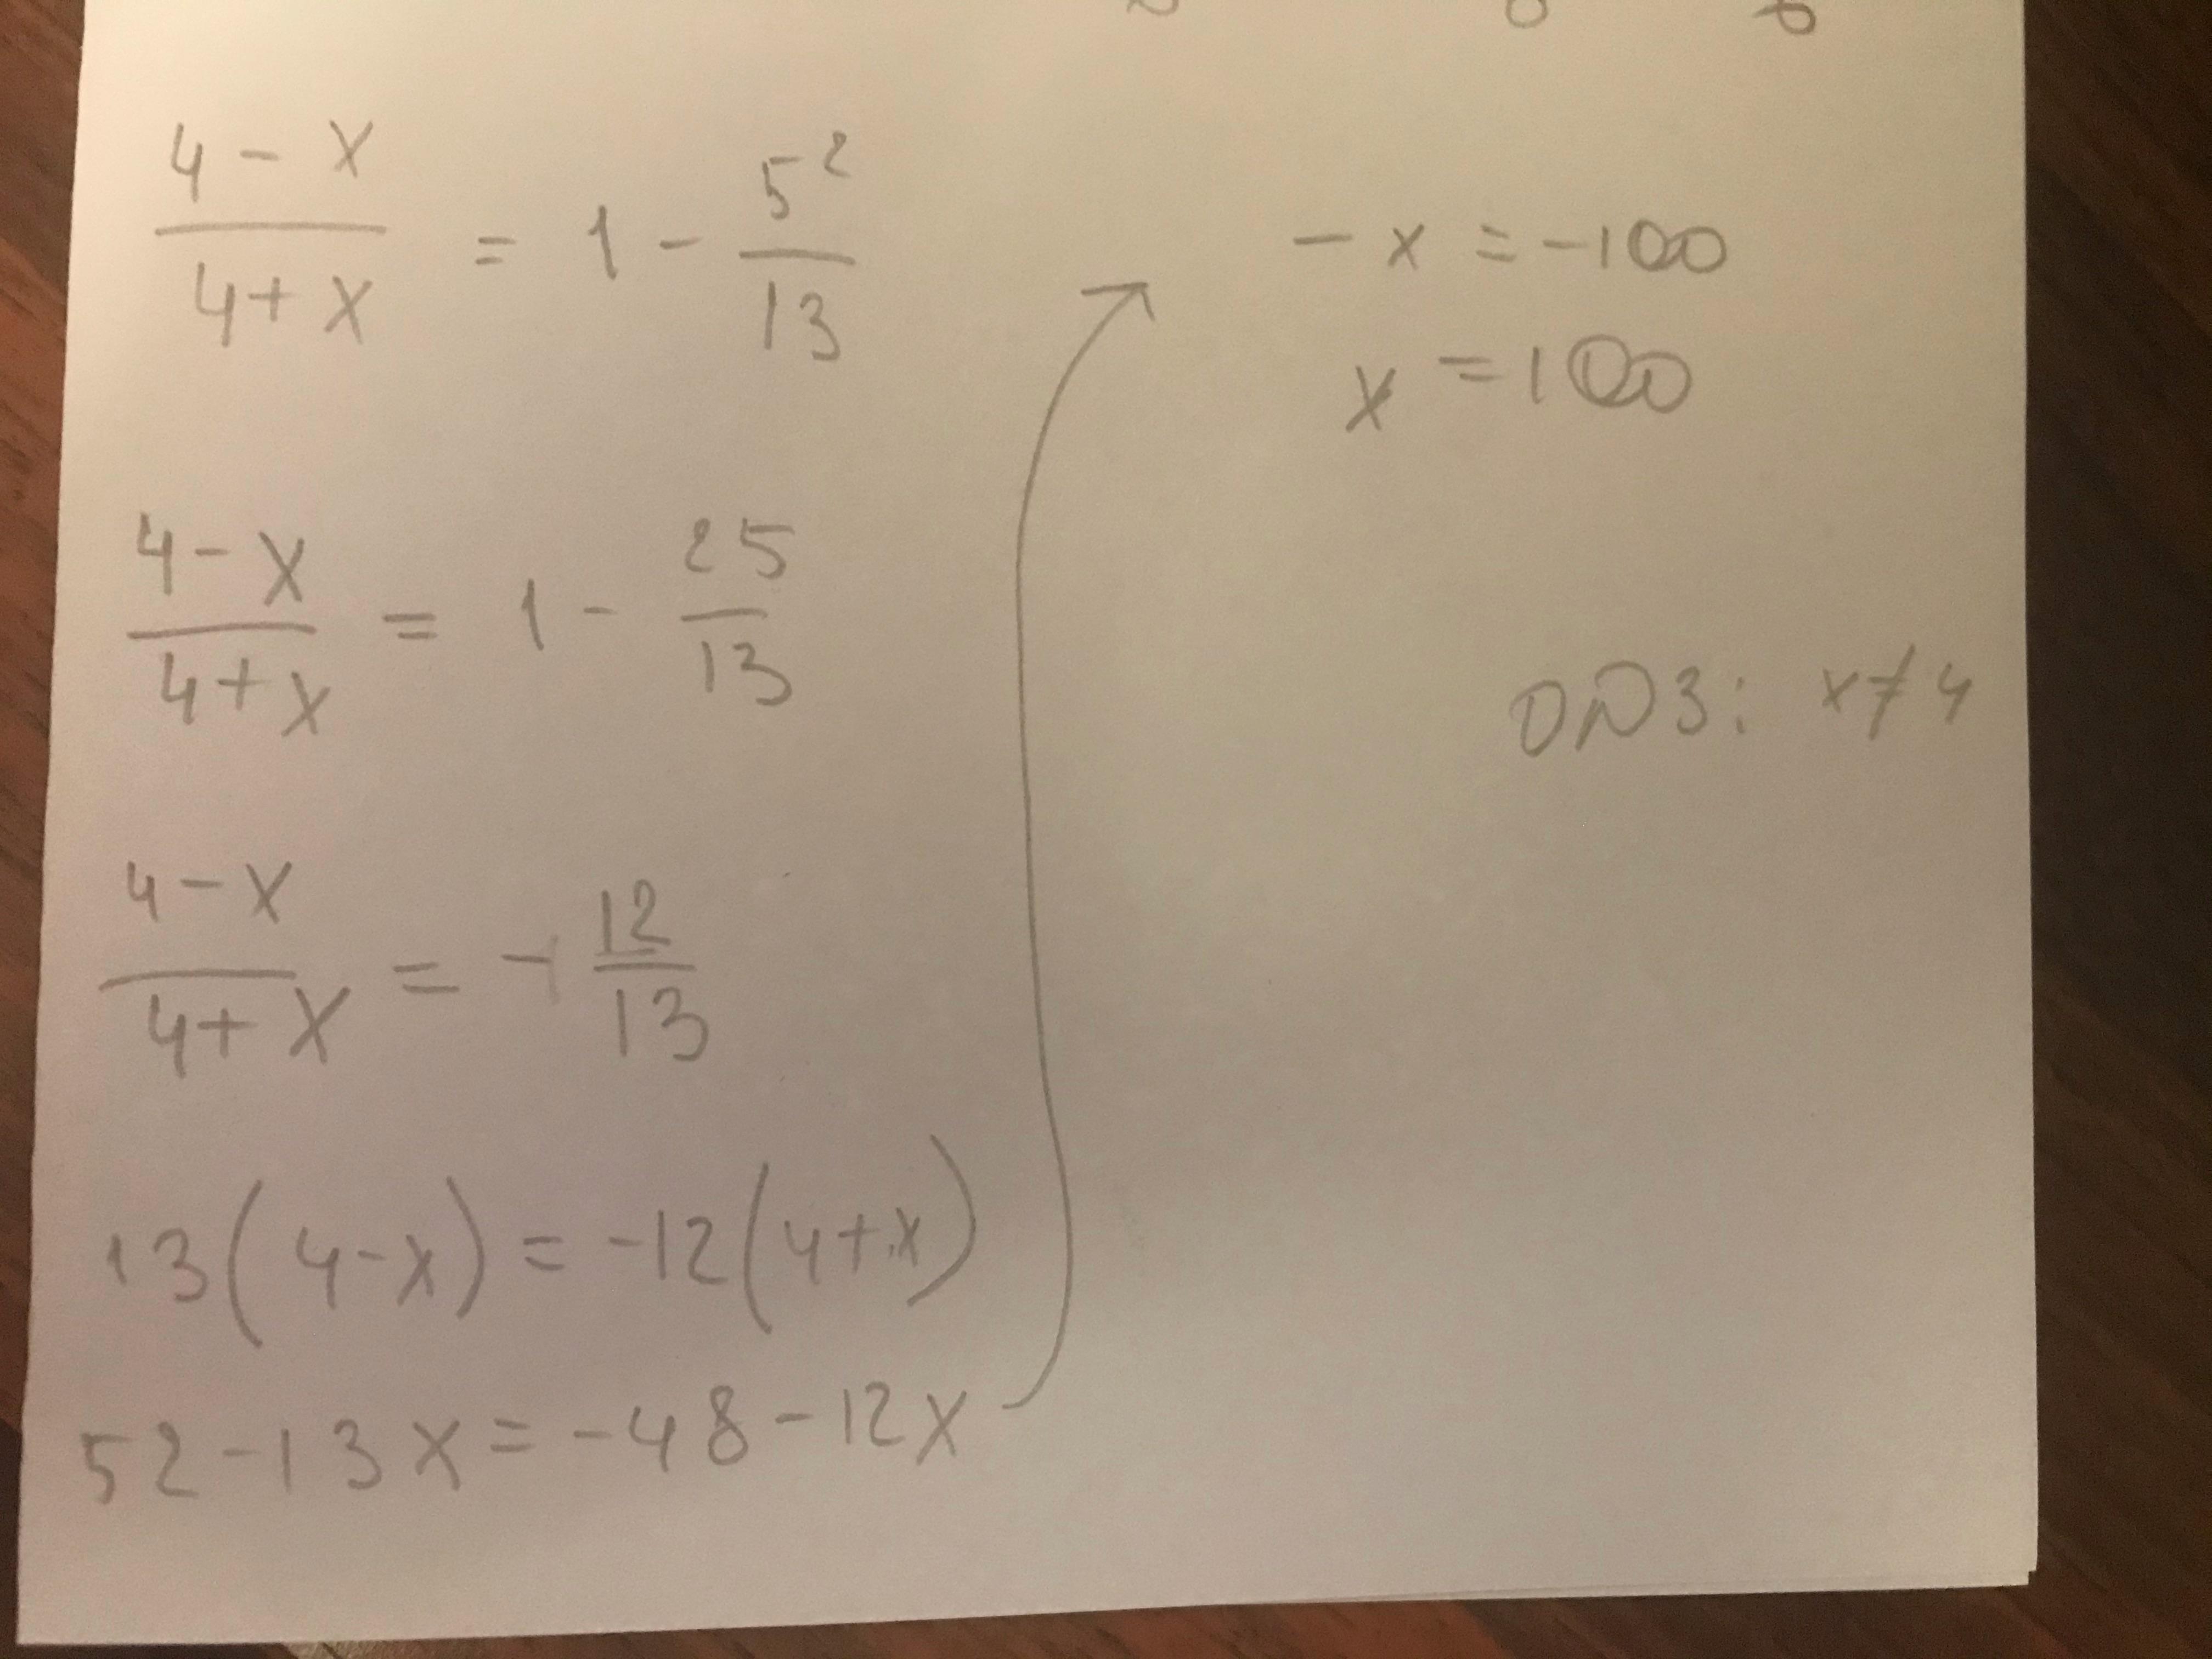 4 - x / 4 + x = 1 - 5² / 13
4 - x / 4 + x = 1 - 25 / 13
4 - x / 4 + x = - 12 / 13
13(4-x) = -12(4+x)
52-13x = -48-12x
-x = -100
x = 100
ОДЗ: x≠4